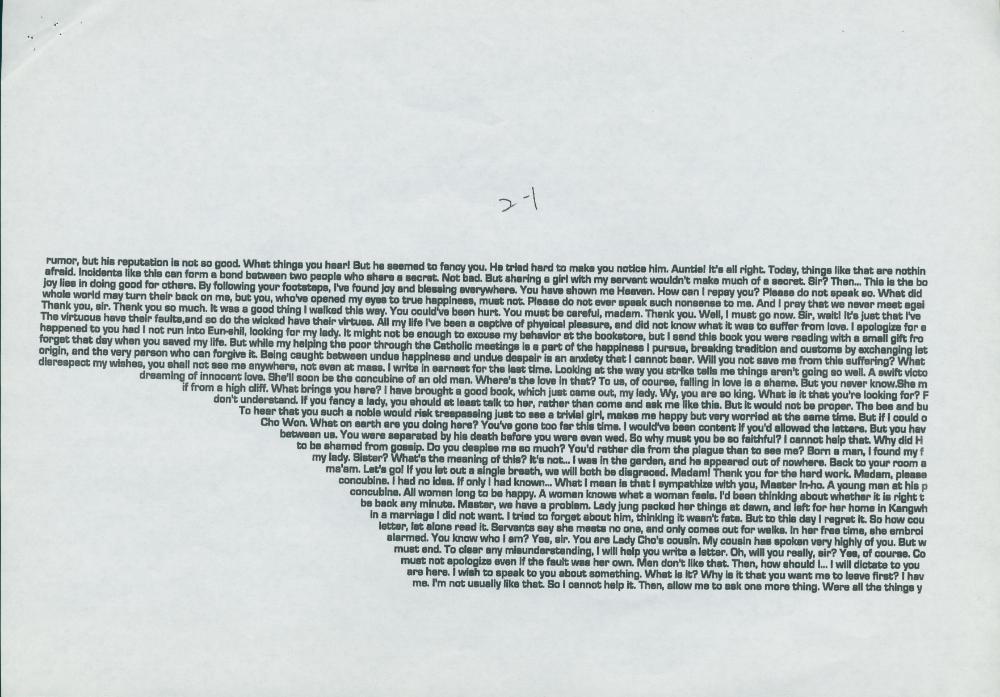 2-1
rumor, but his reputation is not so good. What things you hear! But he seemed to fancy you. He tried hard to make you notice him. Auntie! It's all right. Today, things like that are nothin
afraid. Incidents like this can form a bond between two people who share a secret. Not bad. But sharing a girl with my servant wouldn't make much of a secret. Sir? Then... This is the bo
joy lies in doing good for others. By following your footsteps, I've found joy and blessing everywhere. You have shown me Heaven. How can I repay you? Please do not speak so. What did
whole world may turn their back on me, but you, who've opened my eyes to true happiness, must not. Please do not ever speak such nonsense to me. And I pray that we never meet agai
Thank you, sir. Thank you so much. It was a good thing I walked this way. You could've been hurt. You must be careful, madam. Thank you. Well, I must go now. Sir, wait! It's just that I've
The virtuous have their faults,and so do the wicked have their virtues. All my life I've been a captive of physical pleasure, and did not know what it was to suffer from love. I apologize for e
happened to you had I not run into Eun-shil, looking for my lady. It might not be enough to excuse my behavior at the bookstore, but I send this book you were reading with a small gift fro
forget that day when you saved my life. But while my helping the poor through the Catholic meetings is a part of the happiness I pursue, breaking tradition and customs by exchanging let
origin, and the very person who can forgive it. Being caught between undue happiness and undue despair is an anxiety that I cannot bear. Will you not save me from this suffering? What
disrespect my wishes, you shall not see me anywhere, not even at mass. I write in earnest for the last time. Looking at the way you strike tells me things aren't going so well. A swift victo
dreaming of innocent love. She'll soon be the concubine of an old man. Where's the love in that? To us, of course, falling in love is a shame. But you never know.She m
if from a high cliff. What brings you here? I have brought a good book, which just came out, my lady. Wy, you are so king. What is it that you're looking for? F
don't understand. If you fancy a lady, you should at least talk to her, rather than come and ask me like this. But it would not be proper. The bee and bu
To hear that you such a noble would risk trespassing just to see a trivial girl, makes me happy but very worried at the same time. But if I could o
Cho Won. What on earth are you doing here? You've gone too far this time. I would've been content if you'd allowed the letters. But you hav
between us. You were separated by his death before you were even wed. So why must you be so faithful? I cannot help that. Why did H
to be shamed from gossip. Do you despise me so much? You'd rather die from the plague than to see me? Born a man, I found my f
my lady. Sister? What's the meaning of this? It's not... I was in the garden, and he appeared out of nowhere. Back to your room a
ma'am. Let's go! If you let out a single breath, we will both be disgraced. Madam! Thank you for the hard work. Madam, please
concubine. I had no idea. If only I had known... What I mean is that I sympathize with you, Master In-ho. A young man at his p
concubine. All women long to be happy. A woman knows what a woman feels. I'd been thinking about whether it is right t
be back any minute. Master, we have a problem. Lady jung packed her things at dawn, and left for her home in Kangwh
in a marriage I did not want. I tried to forget about him, thinking it wasn't fate. But to this day I regret it. So how cou
letter, let alone read it. Servants say she meets no one, and only comes out for walks. In her free time, she embroi
alarmed. You know who I am? Yes, sir. You are Lady Cho's cousin. My cousin has spoken very highly of you. But w
must end. To clear any misunderstanding, I will help you write a letter. Oh, will you really, sir? Yes, of course. Co
must not apologize even if the fault was her own. Men don't like that. Then, how should I... I will dictate to you
are here. I wish to speak to you about something. What is it? Why is it that you want me to leave first? I hav
me. I'm not usually like that. So I cannot help it. Then, allow me to ask one more thing. Were all the things y